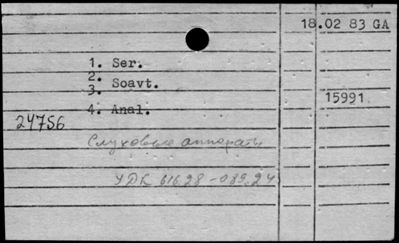 18.02 83 GA
1. Ser.
2.
3. Soavt.
15991
4. Anal.
24756
Слуховые аппараты
УДК 616.28-089.24